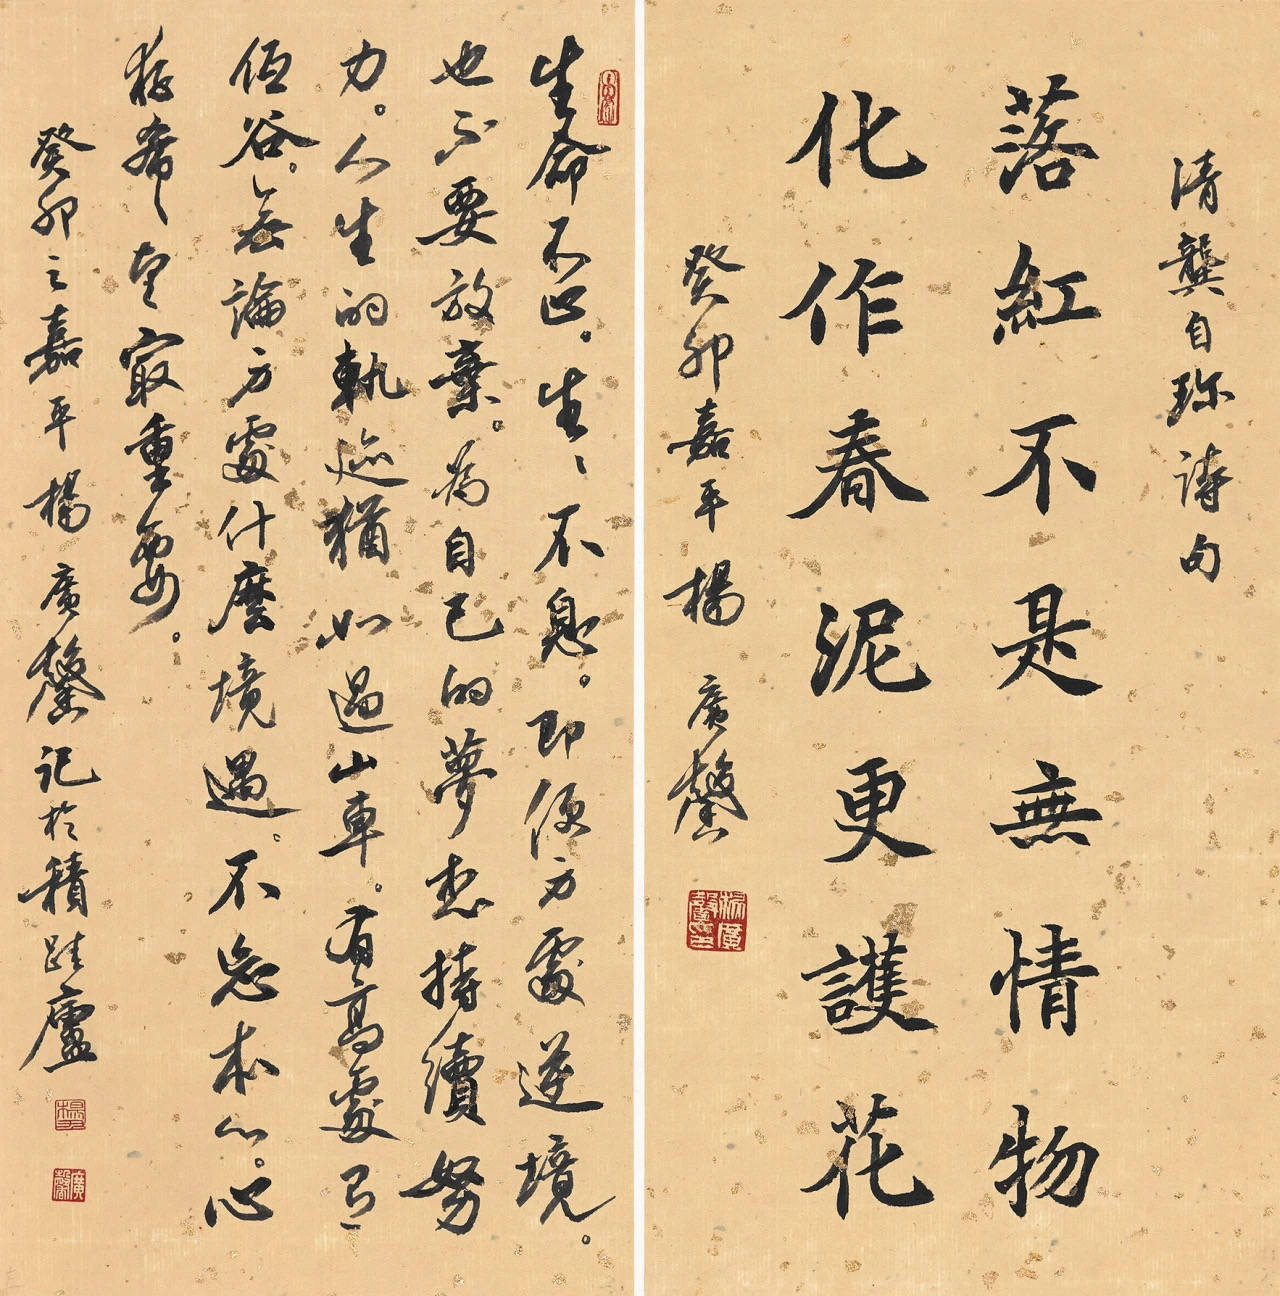 清龔自珍詩句
落紅不是無情物
化作春泥更護花
癸卯嘉平楊廣馨
楊廣馨印
生命不已。生生不息。即便方處逆境。
也不要放棄。為自己的夢想持續努
力。人生的軌迹猶如過山車。有高處有
低谷。無論方處什麼境遇。不忘本心。心
存希望最重要。
癸卯之嘉平楊廣馨記於積跬廬
廣馨